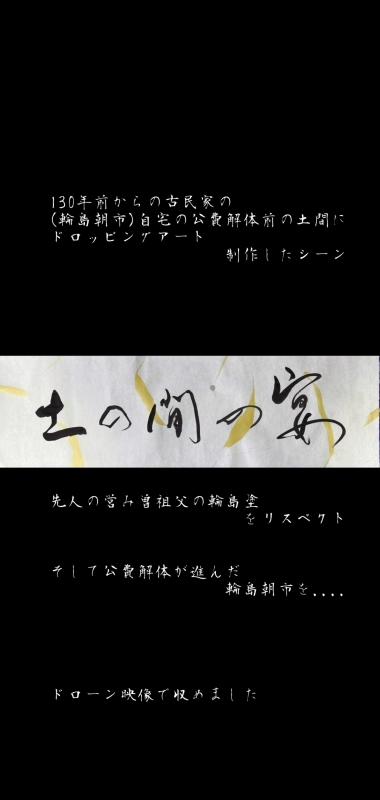 130年前からの古民家の
(輪島朝市)自宅の公費解体前の土間に
ドロッピングアート
制作したシーン
土の間の宴
先人の営み曽祖父の輪島塗
をリスペクト
そして公費解体が進んだ
輪島朝市を....
ドローン映像で収めました